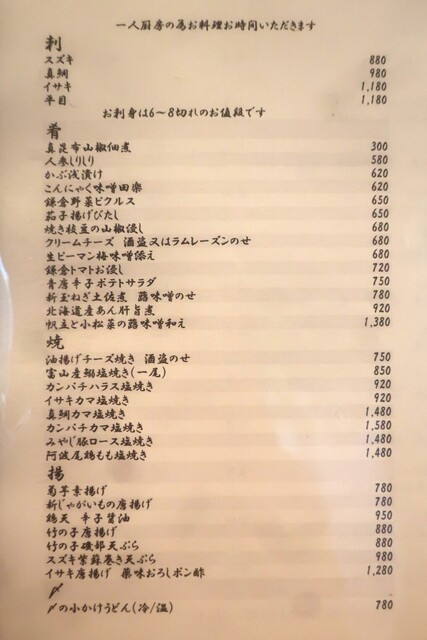 一人厨房の為お料理お時間いただきます
刺
スズキ 880
真鯛 980
イサキ 1,180
平目 1,180
お刺身は6〜8切れのお値段です
肴
真昆布山椒佃煮 300
人参しりしり 580
かぶ浅漬け 620
こんにゃく味噌田楽 620
鎌倉野菜ピクルス 650
茄子揚げびたし 650
焼き枝豆の山椒浸し 680
クリームチーズ 酒盗又はラムレーズンのせ 680
生ピーマン梅味噌添え 680
鎌倉トマトお浸し 720
青唐辛子ポテトサラダ 750
新玉ねぎ土佐煮 蕗味噌のせ 780
北海道産あん肝旨煮 920
帆立と小松菜の蕗味噌和え 1,380
焼
油揚げチーズ焼き 酒盗のせ 750
富山産鰯塩焼き(一尾) 850
カンパチハラス塩焼き 920
イサキカマ塩焼き 920
真鯛カマ塩焼き 1,480
カンパチカマ塩焼き 1,580
みやじ豚ロース塩焼き 1,480
阿波尾鶏もも塩焼き 1,480
揚
菊芋素揚げ 780
新じゃがいもの唐揚げ 780
鶏天 辛子醤油 950
竹の子唐揚げ 880
竹の子磯部天ぷら 880
スズキ紫蘇巻き天ぷら 980
イサキ唐揚げ 薬味おろしポン酢 1,280
〆
〆の小かけうどん(冷/温) 780